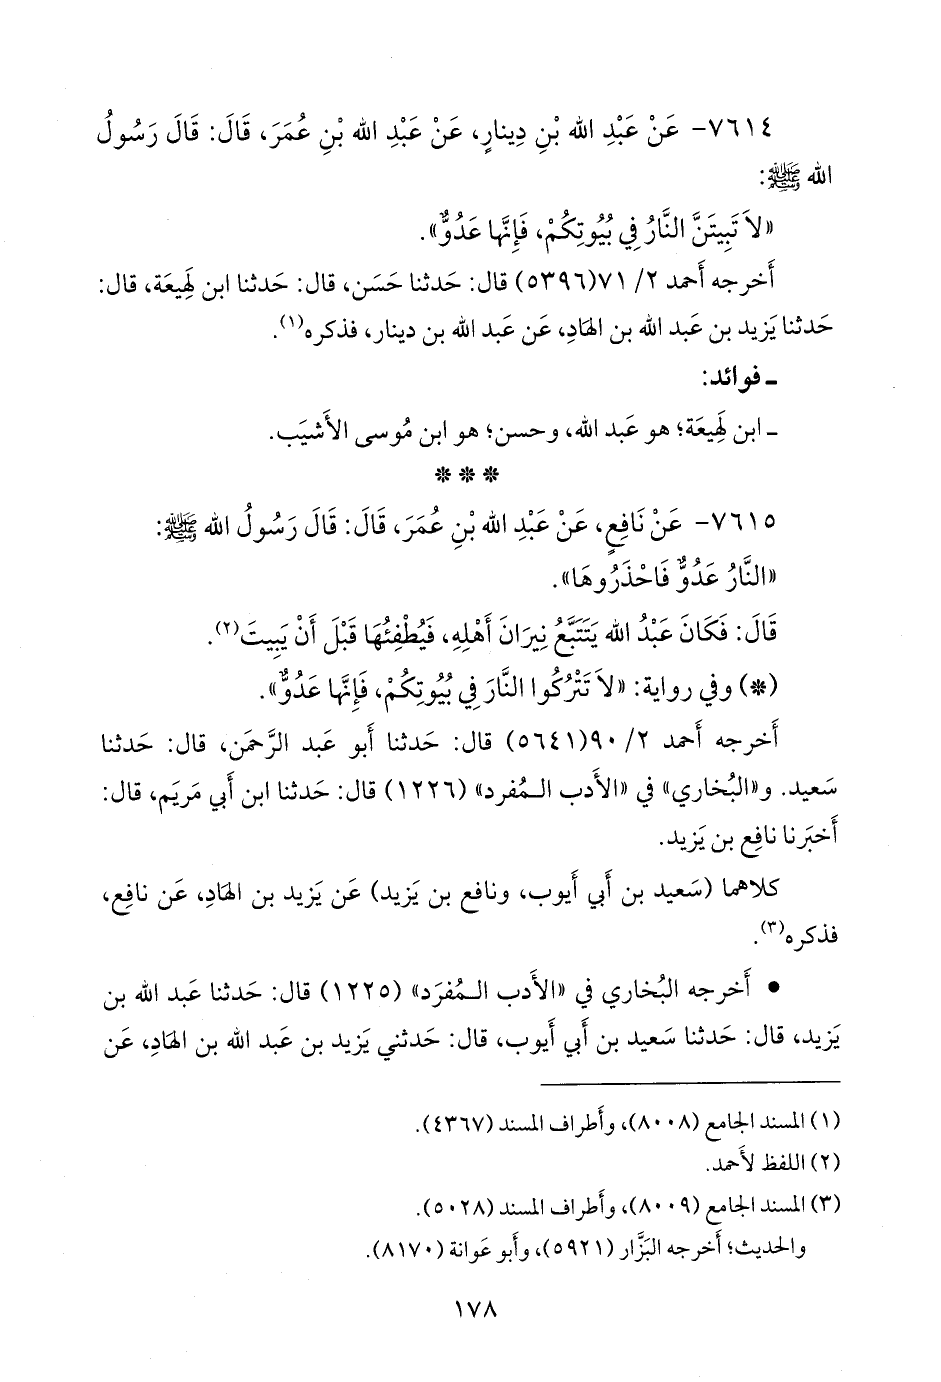 ٧٦١٤- عَنْ عَبْدِ الله بْنِ دِينارٍ، عَنْ عَبْدِ الله بْنِ عُمَرَ، قَالَ: قَالَ رَسُولُ
الله ﷺ:
«لاَ تَبِيتَنَّ النَّارُ فِي بُيُوتِكُمْ، فَإِنَّها عَدُوٌّ».
أَخرجه أَحمد ٢/ ٧١(٥٣٩٦) قال: حَدثنا حَسَن، قال: حَدثنا ابن لَهِيعَة، قال:
حَدثنا يَزيد بن عَبد الله بن الهَادِ، عَن عَبد الله بن دينار، فذكره(١).
ـ فوائد:
ـ ابن لَهِيعَة؛ هو عَبد الله، وحسن؛ هو ابن مُوسى الأَشيَب.
* * *
٧٦١٥- عَنْ نَافِعٍ، عَنْ عَبْدِ الله بْنِ عُمَرَ، قَالَ: قَالَ رَسُولُ الله ﷺ:
«النَّارُ عَدُوٌّ فَاحْذَرُوهَا».
قَالَ: فَكَانَ عَبْدُ الله يَتَتَبَّعُ نِيرَانَ أَهْلِهِ، فَيُطْفِئُهَا قَبْلَ أَنْ يَبِيتَ(٢).
(*) وفي رواية: «لاَ تَتْرُكُوا النَّارَ فِي بُيُوتِكُمْ، فَإِنَّها عَدُوٌّ».
أَخرجه أَحمد ٢/ ٩٠(٥٦٤١) قال: حَدثنا أَبو عَبد الرَّحمَن، قال: حَدثنا
سَعيد. و«البُخاري» في «الأَدب الـمُفرد» (١٢٢٦) قال: حَدثنا ابن أَبي مَريَم، قال:
أَخبَرنا نافِع بن يَزيد.
كلاهما (سَعيد بن أَبي أَيوب، ونافع بن يَزيد) عَن يَزيد بن الهَادِ، عَن نافِع،
فذكره(٣).
• أَخرجه البُخاري في «الأَدب الـمُفرَد» (١٢٢٥) قال: حَدثنا عَبد الله بن
يَزيد، قال: حَدثنا سَعيد بن أَبي أَيوب، قال: حَدثني يَزيد بن عَبد الله بن الهَادِ، عَن
(١) المسند الجامع (٨٠٠٨)، وأَطراف المسند (٤٣٦٧).
(٢) اللفظ لأَحمد.
(٣) المسند الجامع (٨٠٠٩)، وأَطراف المسند (٥٠٢٨).
والحديث؛ أَخرجه البَزَّار (٥٩٢١)، وأَبو عَوانة (٨١٧٠).
١٧٨